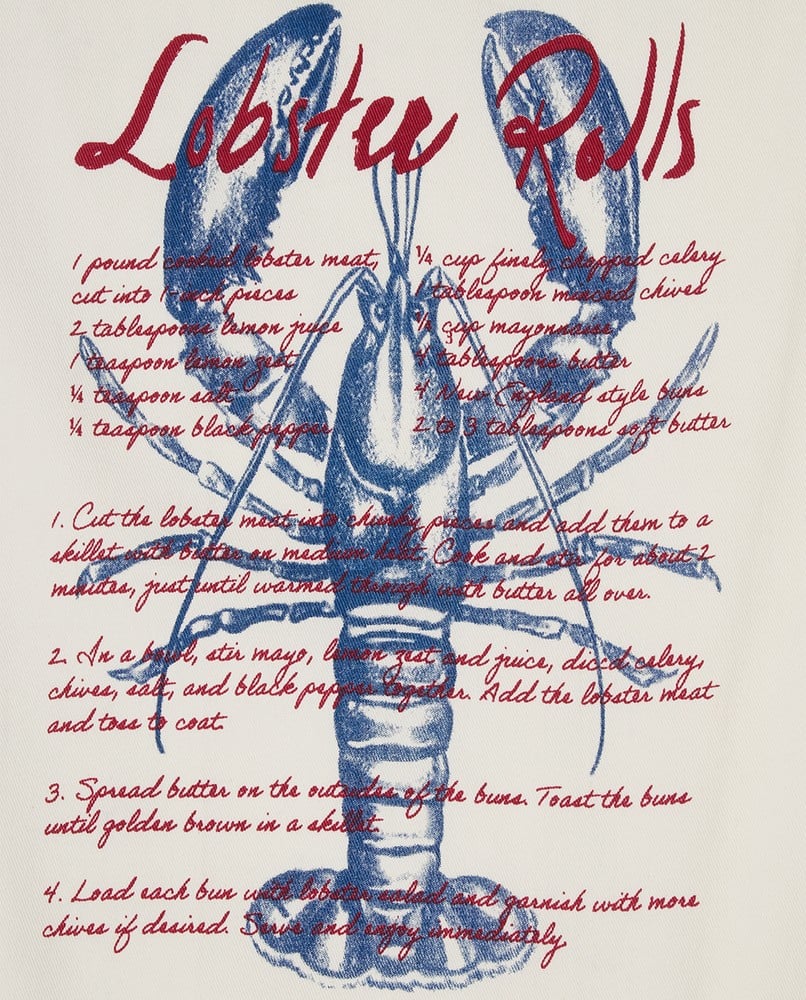 Lobster Rolls
1 pound cooked lobster meat,
cut into 1-inch pieces
2 tablespoons lemon juice
1 teaspoon lemon zest
¼ teaspoon salt
¼ teaspoon black pepper
¼ cup finely chopped celery
1 tablespoon minced chives
cup mayonnaise
4 tablespoons butter
4 New England style buns
2 to 3 tablespoons soft butter
1. Cut the lobster meat into chunky pieces and add them to a
skillet with butter on medium heat. Cook and stir for about 2
minutes, just until warmed through with butter all over.
2. In a bowl, stir mayo, lemon zest and juice, diced celery,
chives, salt, and black pepper together. Add the lobster meat
and toss to coat.
3. Spread butter on the outsides of the buns. Toast the buns
until golden brown in a skillet.
4. Load each bun with lobster salad and garnish with more
chives if desired. Serve and enjoy immediately